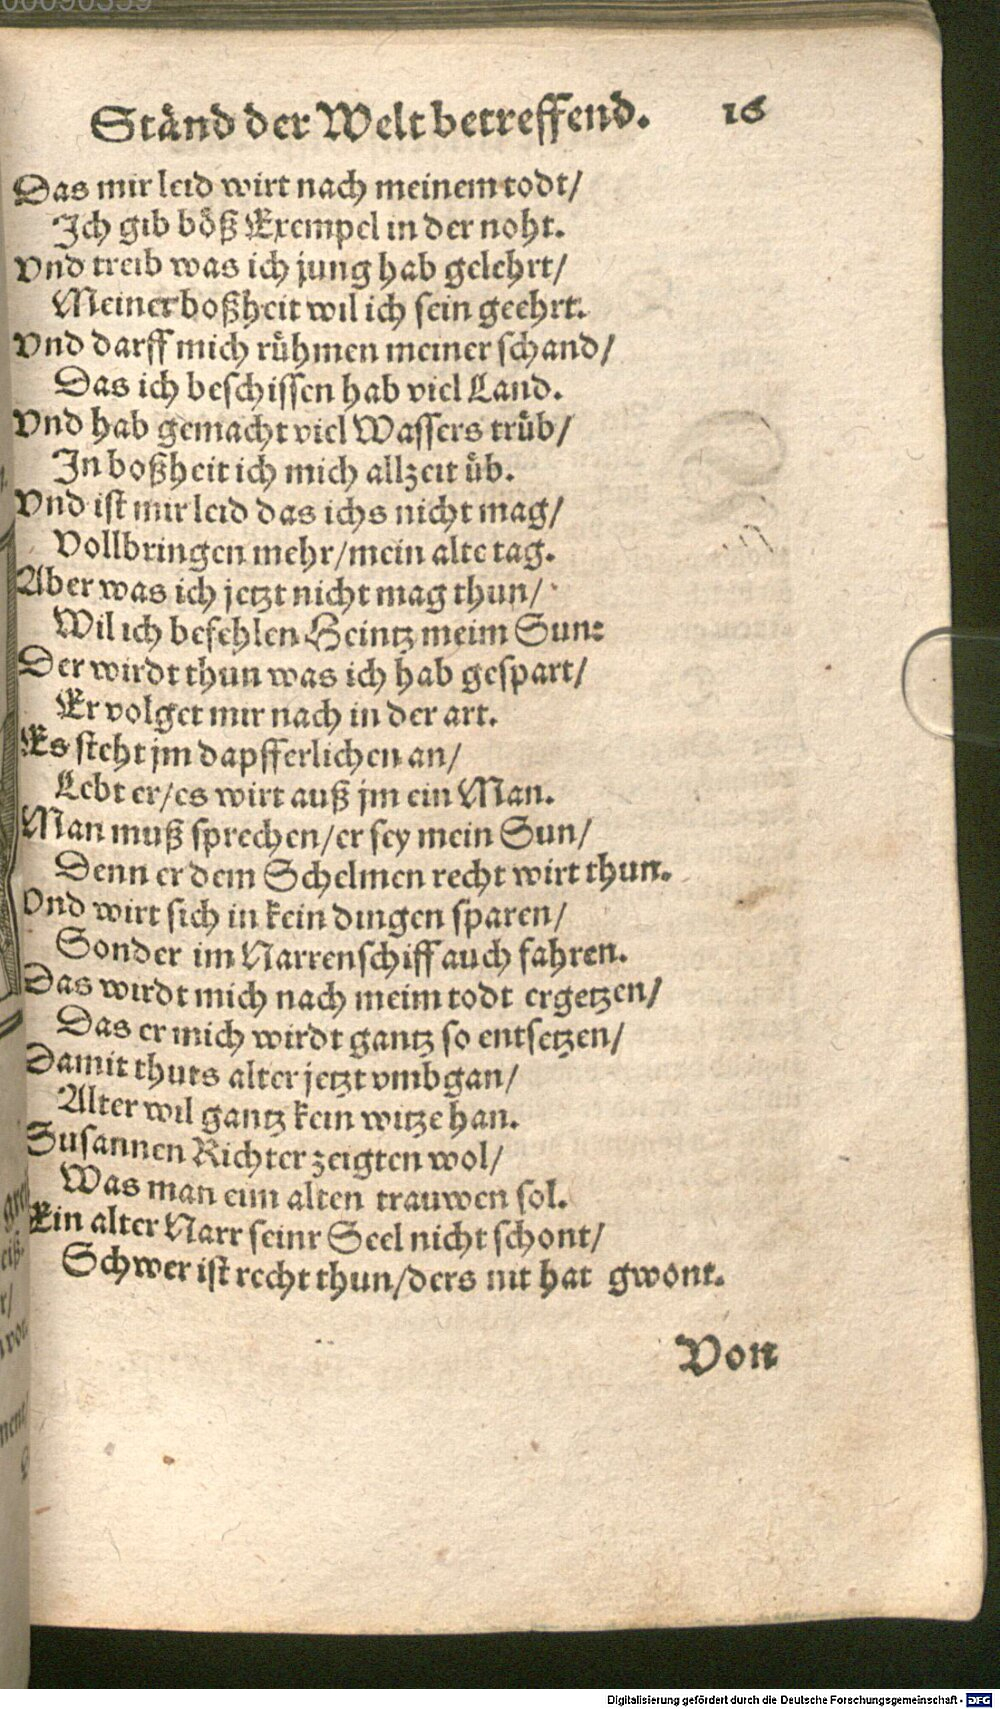 Ständ der Welt betreffend. 16
Das mir leid wirt nach meinem todt/
Ich gib böß Exempel in der noht.
Vnd treib was ich jung hab gelehrt/
Meiner boßheit wil ich sein geehrt.
Vnd darff mich rühmen meiner schand/
Das ich beschissen hab viel Land.
Vnd hab gemacht viel Wassers trüb/
In boßheit ich mich allzeit üb.
Vnd ist mir leid das ichs nicht mag/
Vollbringen mehr/mein alte tag.
Aber was ich jetzt nicht mag thun/
Wil ich befehlen Heintz meim Sun:
Der wirdt thun was ich hab gespart/
Er volget mir nach in der art.
Es steht jm dapfferlichen an/
Lebt er/es wirt auß jm ein Man.
Man muß sprechen/er sey mein Sun/
Denn er dem Schelmen recht wirt thun.
Vnd wirt sich in kein dingen sparen/
Sonder im Narrenschiff auch fahren.
Das wirdt mich nach meim todt ergetzen/
Das er mich wirdt gantz so entsetzen/
Damit thuts alter jetzt vmbgan/
Alter wil gantz kein witze han.
Susannen Richter zeigten wol/
Was man eim alten trauwen sol.
Ein alter Narr seinr Seel nicht schont/
Schwer ist recht thun/ders nit hat gwont.
Von
Digitalisierung gefördert durch die Deutsche Forschungsgemeinschaft - DFG